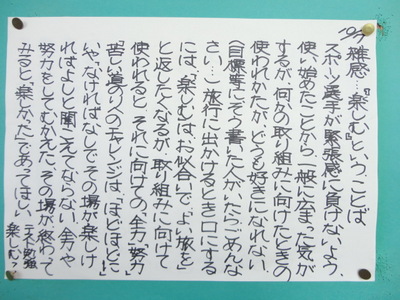 10/9 雑感…『楽しむ』ということば
スポーツ選手が緊張感に負けないよう、
使い始めたことから、一般に広まった気が
するが、何かの取り組みに向けたときの
使われかたが、どうも好きになれない、
(目標等にそう書いた人がいたらごめんな
さい…)旅行に出かけるとき口にする
には、「楽しむ」はお似合いで「よい旅を」
と返したくなるが、取り組みに向けて
使われると、それに向けての「全力」「努力」
「苦しい道のりへのチャレンジ」は「ほどほどに」
や、「なければなし」でその場が楽しけ
ればよしと聞こえてならない。全力や
努力をしてむかえたその場が終わって
みると「楽しかった」であってほしい。
テスト勉強
楽しむ?